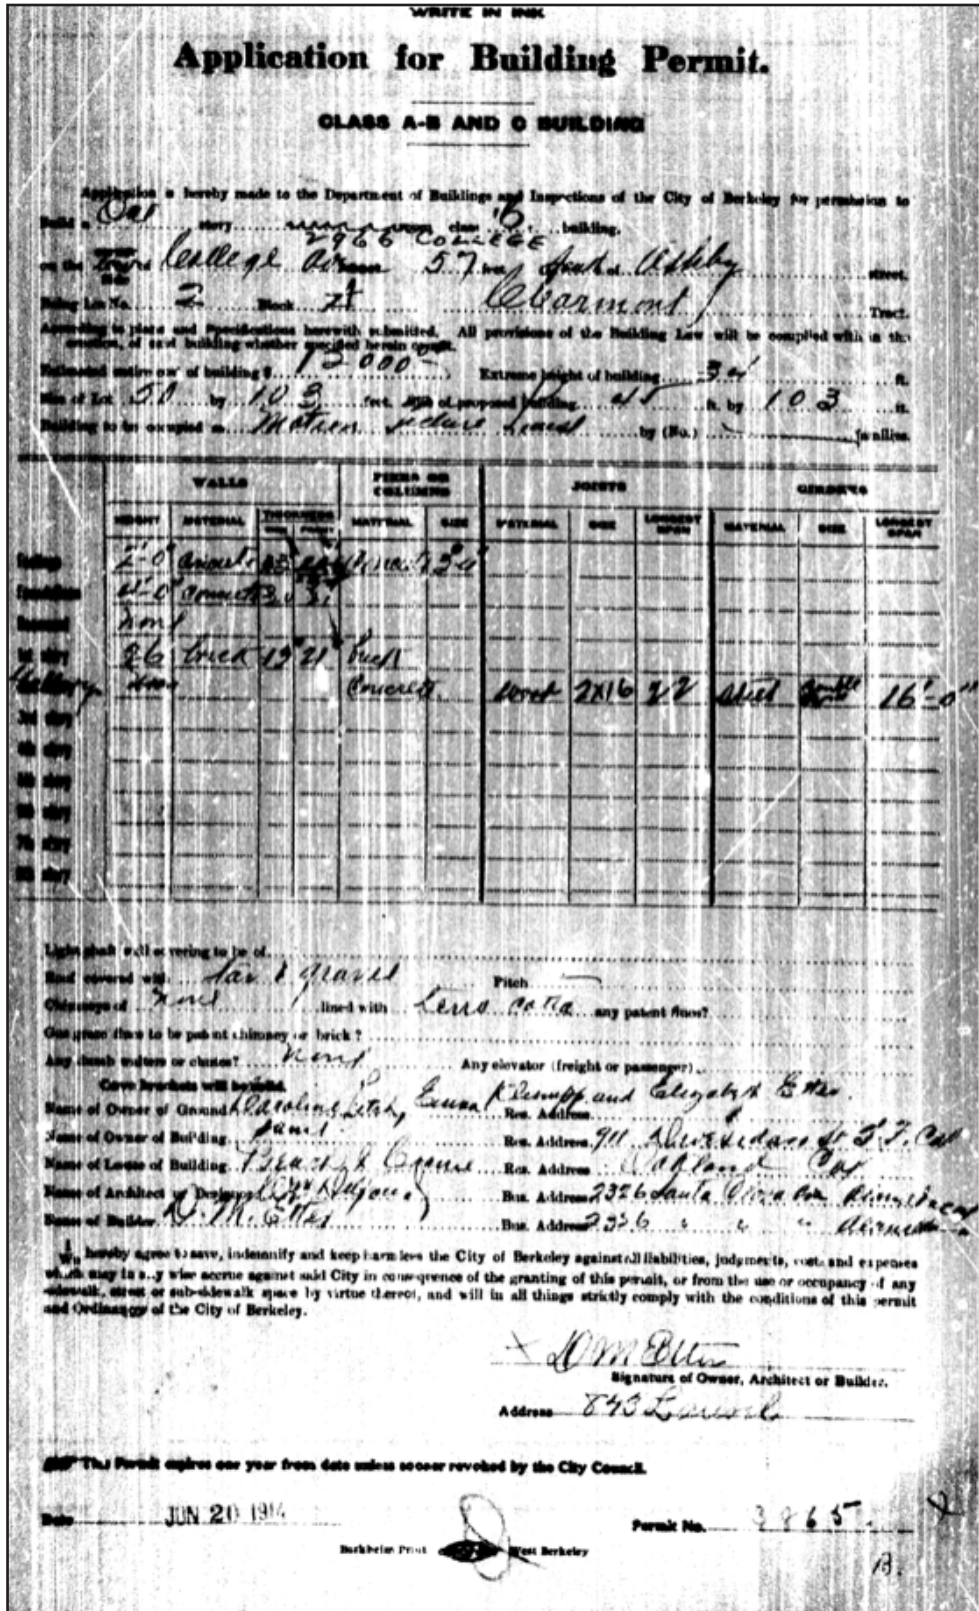 WRITE IN INK
Application for Building Permit.
CLASS A-B AND C BUILDING
Application is hereby made to the Department of Buildings and Inspections of the City of Berkeley for permission to
Build a One story room class building.
2966 COLLEGE
on the College Ave 57 feet of Ashby street.
Being Lot No. 2 Block Claremont Tract.
According to plans and Specifications herewith submitted. All provisions of the Building Law will be complied with in the
erection, of said building whether specified herein or not.
Estimated entire cost of building $ 12000 Extreme height of building 34 ft.
Size of Lot 50 by 103 feet. Size of proposed building 45 ft. by 103 ft.
Building to be occupied as Motion picture house by (No.) families.
WALLS PIERS OR COLUMNS JOISTS GIRDERS
HEIGHT MATERIAL THICKNESS MATERIAL SIZE MATERIAL SIZE LONGEST SPAN MATERIAL SIZE LONGEST SPAN
Footings 2'-0" concrete concrete
Foundations concrete
Basement none
1st story 26 brick 21
Gallery concrete wood 2x16 22 steel 16'-0"
3rd story
4th story
5th story
6th story
7th story
8th story
Light shaft wall covering to be of
Roof covered with tar & gravel Pitch
Chimneys of none lined with terra cotta any patent flues?
Gas grate flues to be patent chimney or brick?
Any dumb waiters or chutes? none Any elevator (freight or passenger)
Cove brackets will be solid.
Name of Owner of Ground Emma and Elizabeth Etter Res. Address
Name of Owner of Building same Res. Address 911 St S.F. Cal
Name of Lessee of Building Beach & Res. Address Oakland Cal
Name of Architect or Designer Bus. Address 2326 Santa Clara Ave
Name of Builder D. M. Etter Bus. Address 2326 " " "
We hereby agree to save, indemnify and keep harmless the City of Berkeley against all liabilities, judgments, costs and expenses
which may in any wise accrue against said City in consequence of the granting of this permit, or from the use or occupancy of any
sidewalk, street or sub-sidewalk space by virtue thereof, and will in all things strictly comply with the conditions of this permit
and Ordinances of the City of Berkeley.
X D M Etter
Signature of Owner, Architect or Builder.
Address 843
This Permit expires one year from date unless sooner revoked by the City Council.
Date JUN 20 1914 Permit No. 3865
Print West Berkeley
B.